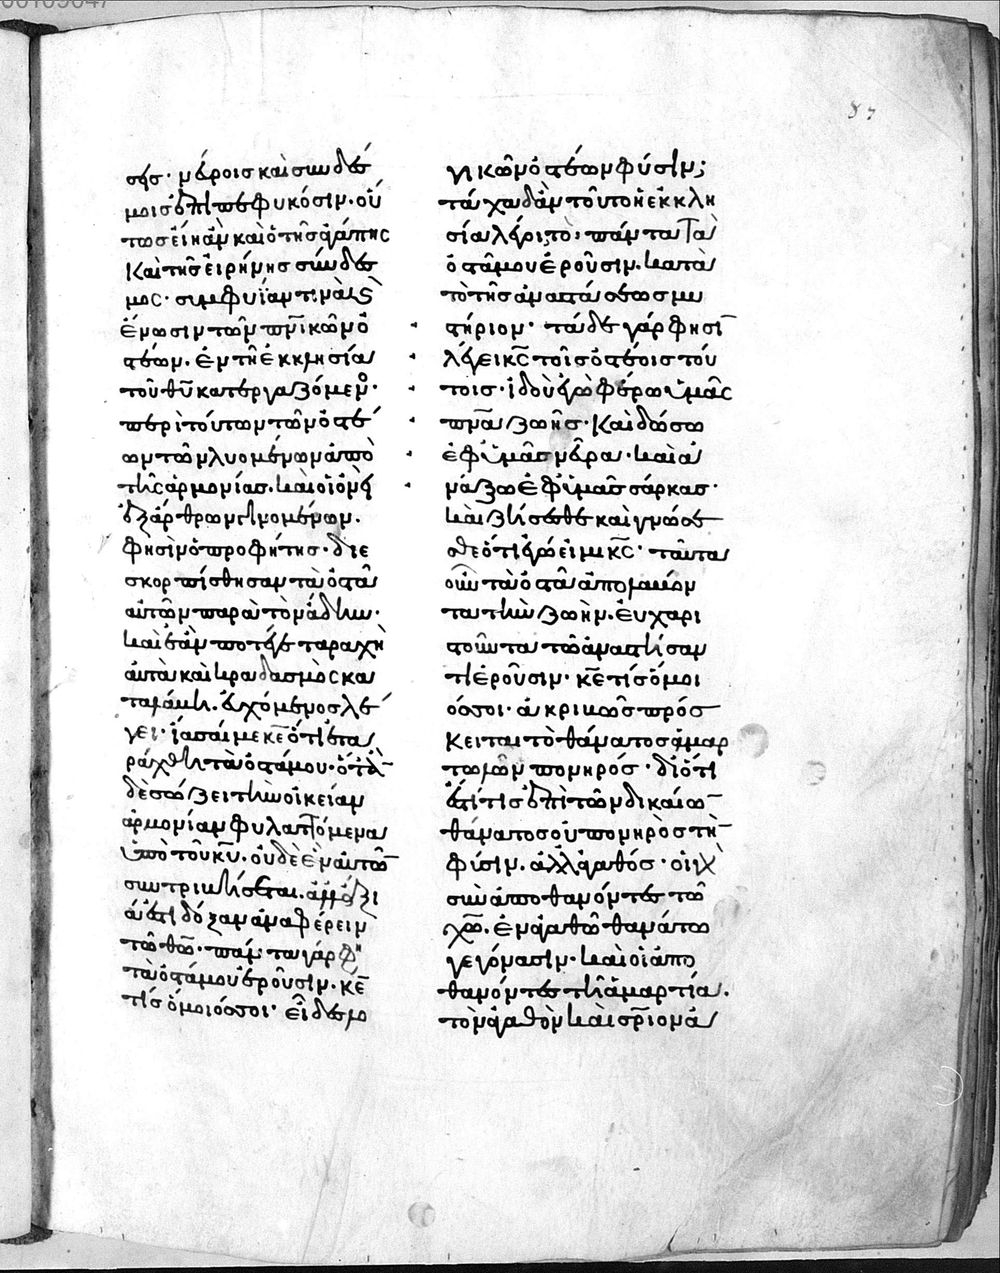 σεσ· νεύροις καὶ συνδέσ
μοις ἐπιπεφυκόσιν· οὕ
τως εἴη ἂν καὶ ὁ τῆς ἀγάπης
καὶ τῆς εἰρήνης σύνδεσ
μος· συμφυΐαν τινὰ καὶ
ἕνωσιν τῶν πνικῶν ὀ
στέων. ἐν τῆ ἐκκλησία
τοῦ θῦ κατεργαζόμενο·
περὶ τούτων τῶν ὀστέ
ων τῶν λυομένων ἀπὸ
τῆς ἁρμονίας. καὶ οἱονεὶ
ἐξάρθρων γινομένων.
φησὶν ὁ προφήτης· διε
σκορπίσθησαν τὰ ὀστᾶ
αὐτῶν παρὰ τὸν ἅδην·
καὶ ἐάν ποτέ γε ταραχὴ
αὐτὰ καὶ κραδασμὸς κα
ταλάβη. εὐχόμενος λέ
γει· ἴασαί με κε ὅτι ἐτα
ράχθη τὰ ὀστᾶ μου· ὅταν
δὲ σώζει τὴν οἰκείαν
ἁρμονίαν φυλαττόμενα
ὑπὸ τοῦ κυ. οὐδὲ ἓν αὐτῶ
συντριβήσεται. ἀλλ' ἄξι
ά ἐστι δόξαν ἀναφέρειν
τῶ θῶ· πάντα γὰρ φη
τὰ ὀστᾶ μου ἐροῦσιν· κε
τίς ὅμοιός σοι· εἶδες μο
87
γικῶν ὀστέων φύσιν;
τάχα δ' ἂν τοῦτο ἡ ἐκκλη
σία λέγοι τὸ· πάντα τὰ
ὀστᾶ μου ἐροῦσιν. κατὰ
τὸ τῆς ἀναστάσεως μυ
στήριον· τάδε γάρ φησὶ
λέγει κς τοῖς ὀστέοις τού
τοις· ἰδοὺ ἐγὼ φέρω ὑμᾶς
πνα ζωῆς· καὶ δώσω
ἐφ' ὑμᾶς νεῦρα· καὶ ἀ
νάξω ἐφ' ὑμᾶς σάρκας·
καὶ ζήσεσθε καὶ γνώσε
σθε ὅτι ἐγώ εἰμι κς· ταῦτα
οὖν τὰ ὀστᾶ ἀπολαβόν
τα τὴν ζωὴν. εὐχαρι
στοῦντα τῶ ἀναστήσαν
τι ἐροῦσιν· κε τίς ὅμοι
ός σοι· ἀκριβῶς πρόσ
κειται τὸ θάνατος ἁμαρ
τωλῶν πονηρός· διότι
ἐστί τις ἐπὶ τῶν δικαίων
θάνατος οὐ πονηρὸς τὴν
φύσιν. ἀλλ' ἀγαθός· οἱ γὰρ
συναποθανόντες τῶ
χω. ἐν ἀγαθῶ θανάτω
γεγόνασιν· καὶ οἱ ἀπο
θανόντες τῆ ἁμαρτία.
τὸν ἀγαθὸν καὶ σριον ἀ